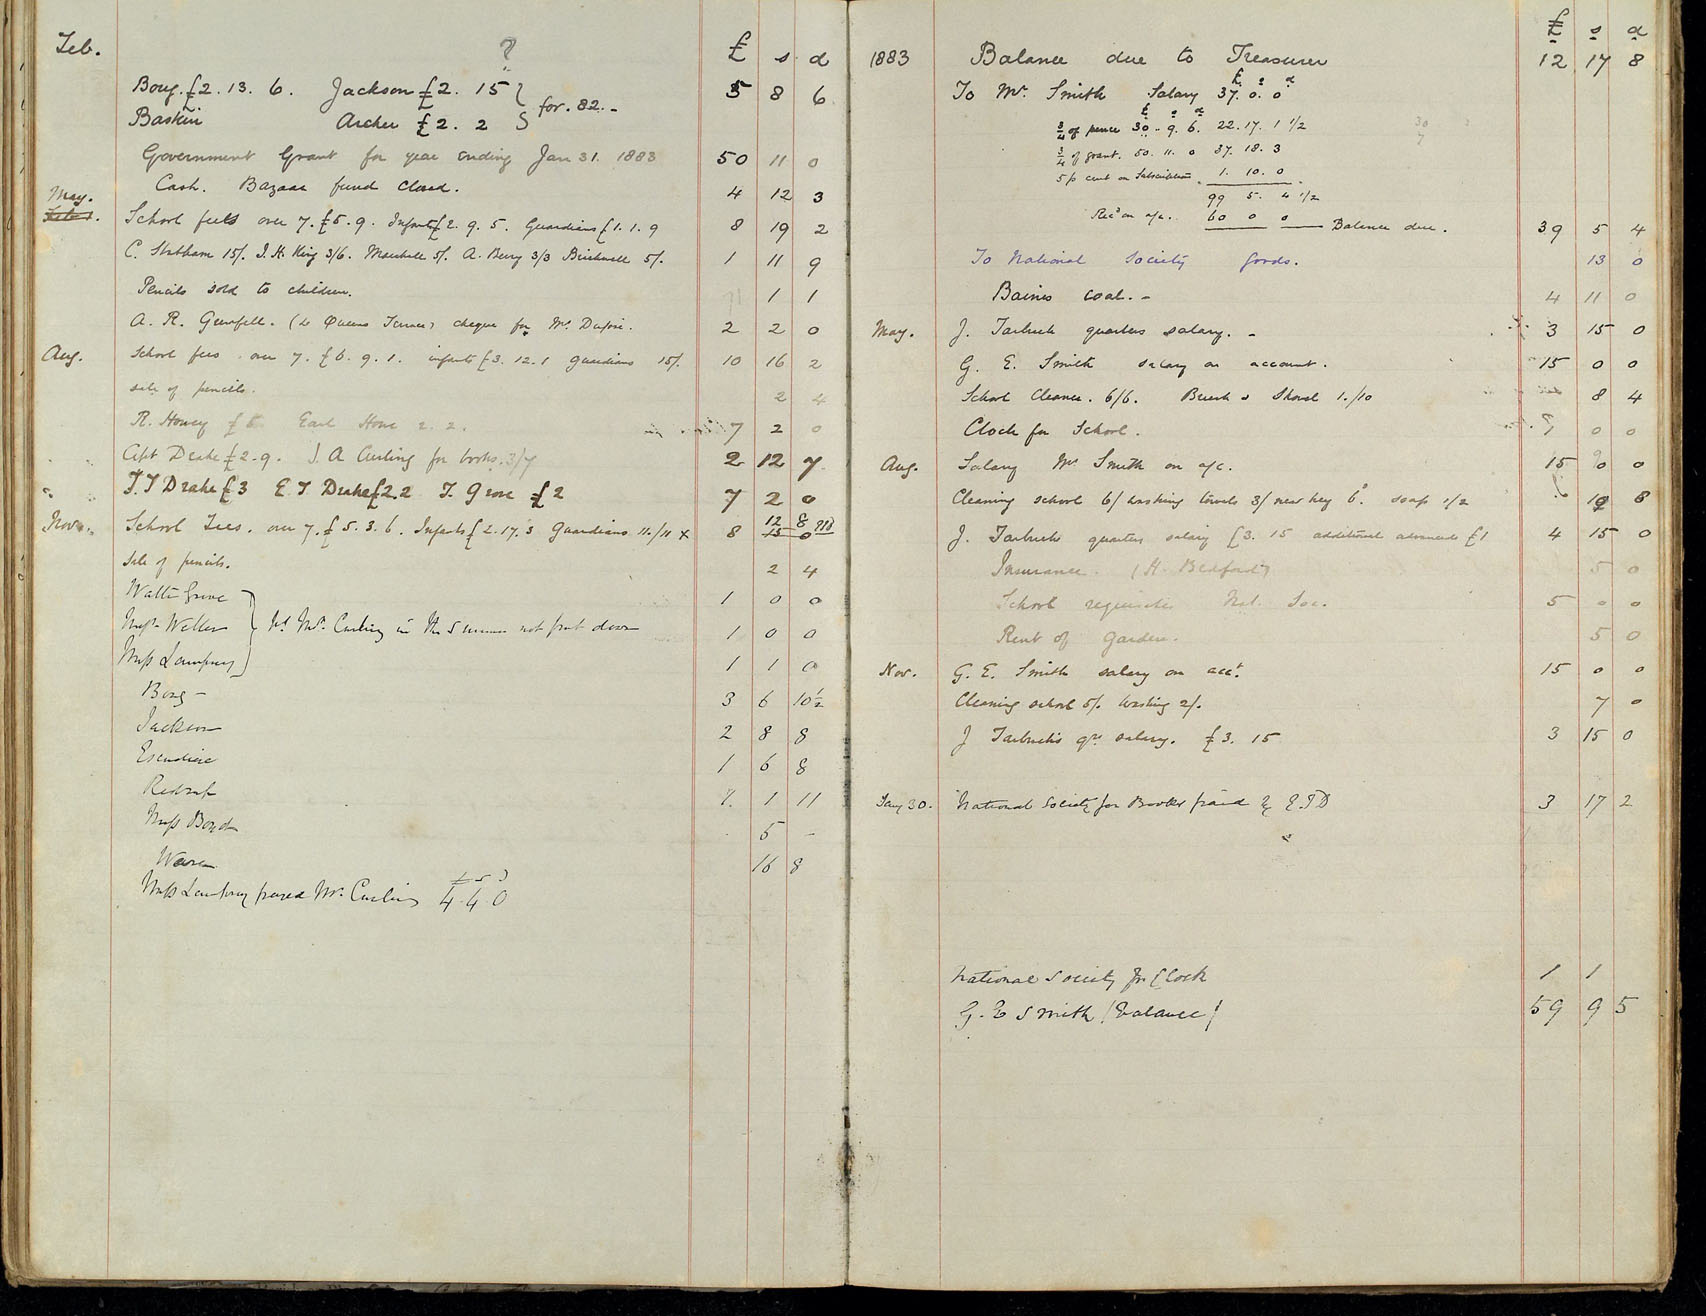 Feb. ? £ s. d
Bong. £2. 13. 6. Jackson £2. 15 } for. 82. - 5 8 6
Baskin Archer £2. 2
Government Grant for year ending Jan 31. 1883 50 11 0
Cash. Bazaar fund closed. 4 12 3
May. School fees over 7. £5. 9. Infants £2. 9. 5. Guardians £1. 1. 9 8 19 2
C. Statham 15/. J. H. King 3/6. Marshall 5/. A. Berry 3/3 5/. 1 11 9
Pencils sold to children. 1 1
A. R. Grenfell. cheque for Mr. 2 2 0
Aug. School fees over 7. £6. 9. 1. infants £3. 12. 1 guardians 15/. 10 16 2
sale of pencils. 2 4
R. Howey £5 Earl Howe 2. 2. 7 2 0
Capt Drake £2-9. J. A Curling for books. 3/7 2 12 7
T. T Drake £3 E T. Drake £2.2 T. Grove £2 7 2 0
Nov. School Fees. over 7. £5. 3. 6. Infants £2. 17. 3 Guardians 11./11 x 8 12 8
15 0
Sale of pencils. 2 4
Walter Grove 1 0 0
Miss Weller } Mr. Curling in the Summer not put down 1 0 0
Miss Lamprey 1 1 0
Bong - 3 6 10½
Jackson 2 8 8
1 6 8
Redrup 1 11
Miss Bond 5 -
16 8
Miss Lamprey Mr. Curling 4. 4. 0
£ s d
1883 Balance due to Treasurer 12 17 8
£ s d
To Mr. Smith Salary 37. 0. 0
£ s d
¾ of pence 30. 9. 6. 22. 17. 1 1/2
¾ of grant. 50. 11. 0 37. 18. 3
5 p cent on Subscriptions. 1. 10. 0
99 5. 4 1/2
Recd on a/c. 60 0 0 Balance due. 39 5 4
To National Society goods. 13 0
Baines coal. - 4 11 0
May. J. Tarbuck quarters salary. - 3 15 0
G. E. Smith salary on account. 15 0 0
School Cleaner. 6/6. Brush & Shovel 1./10 8 4
Clock for School. 1 0 0
Aug. Salary Mr Smith on a/c. 15 0 0
Cleaning school 6/ washing towels 3/ new key 6d. soap 1/2 10 8
J. Tarbucks quarters salary £3. 15 additional advanced £1 4 15 0
Insurance. (H. Bedford) 5 0
School requisites Nat. Soc. 5 0 0
Rent of garden. 5 0
Nov. G. E. Smith salary on acct. 15 0 0
Cleaning school 5/. washing 2/. 7 0
J Tarbucks qrs salary. £3. 15 3 15 0
Jany 30. National Society for Books paid by E.T.D 3 17 2
National Society for Clock 1 1
G. E Smith (balance) 59 9 5